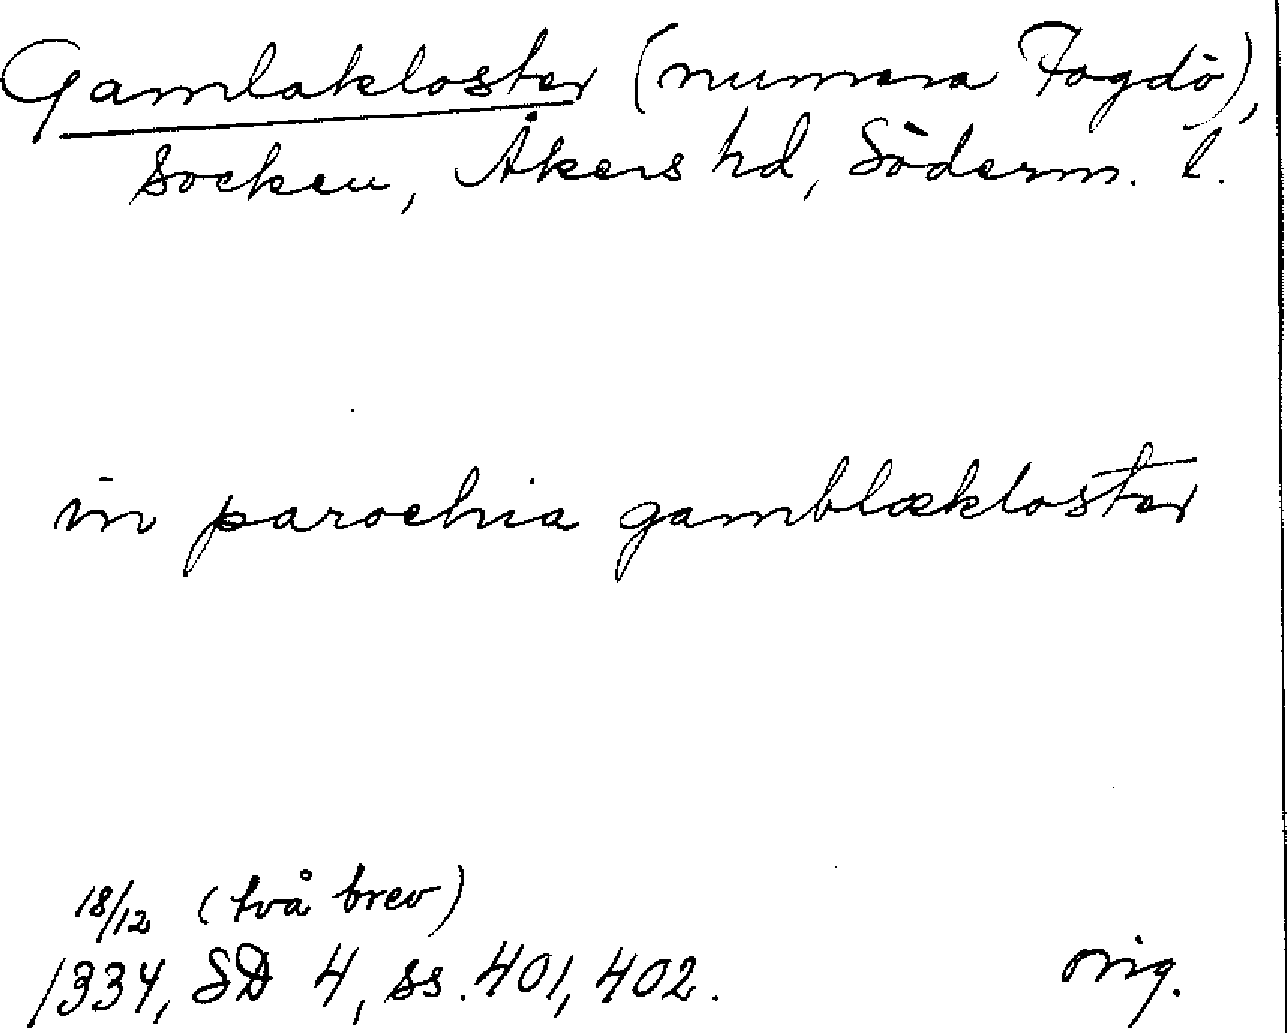 Gamlakloster (numera Fogdö),
socken, Åkers hd, Söderm. l.
in parochia gamblækloster
18/12 (två brev)
1334, SD 4, ss. 401, 402.
orig.